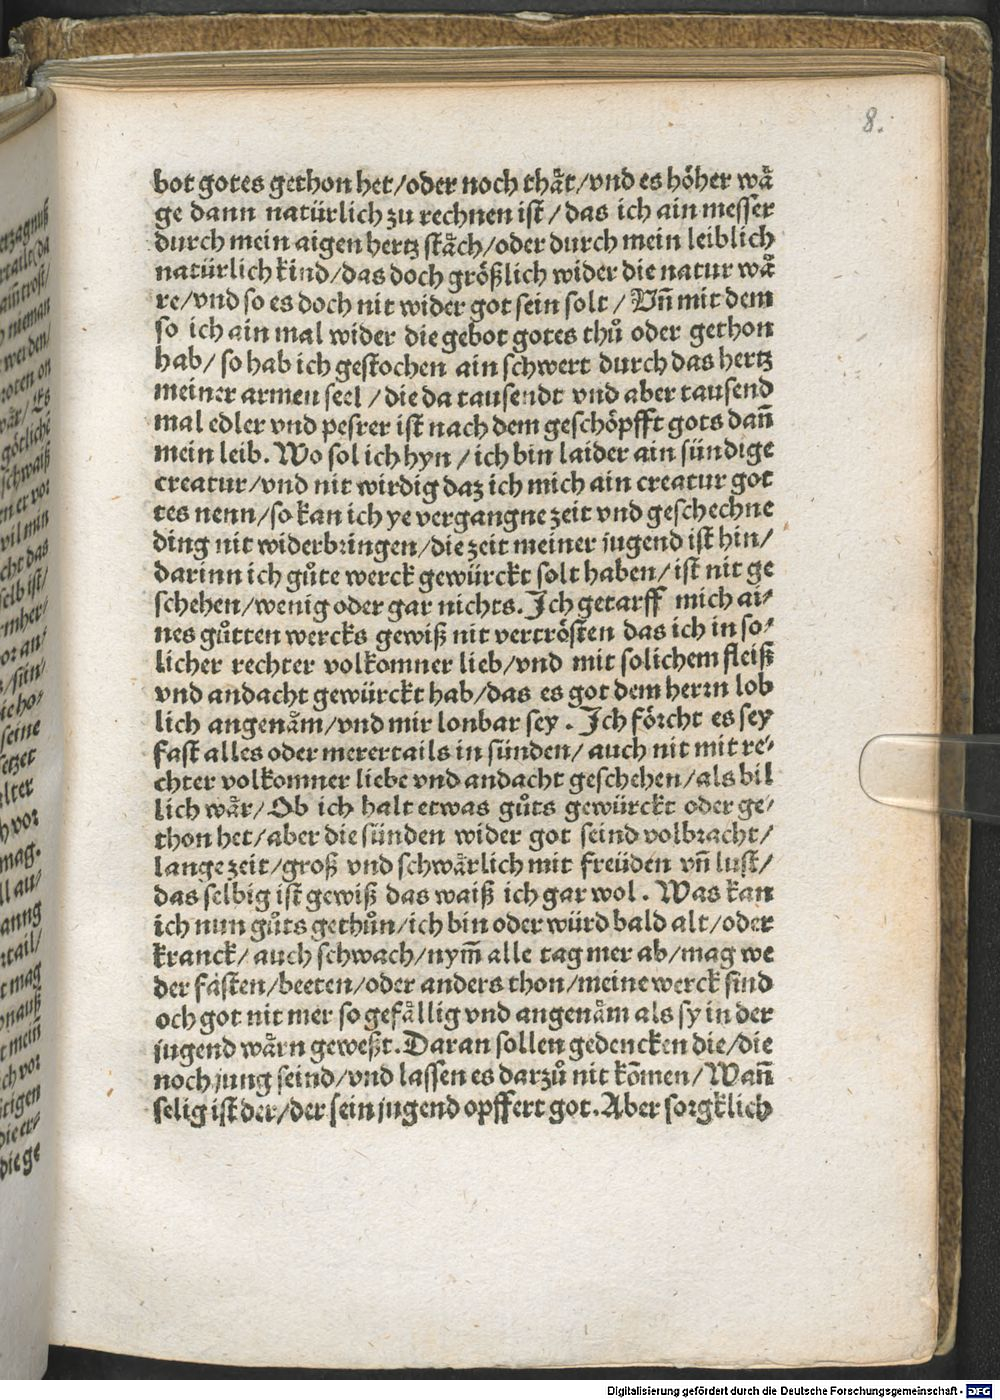 8.
bot gotes gethon het/oder noch thaͤt/vnd es hoͤher waͤ
ge dann natürlich zu rechnen ist/das ich ain messer
durch mein aigen hertz staͤch/oder durch mein leiblich
natürlich kind/das doch groͤßlich wider die natur waͤ
re/vnd so es doch nit wider got sein solt/Vñ mit dem
so ich ain mal wider die gebot gotes thuͦ oder gethon
hab/so hab ich gestochen ain schwert durch das hertz
meiner armen seel/die da tausendt vnd aber tausend
mal edler vnd pesrer ist nach dem geschoͤpfft gots dañ
mein leib. Wo sol ich hyn/ich bin laider ain sündige
creatur/vnd nit wirdig daz ich mich ain creatur got
tes nenn/so kan ich ye vergangne zeit vnd geschechne
ding nit widerbringen/die zeit meiner jugend ist hin/
darinn ich guͦte werck gewürckt solt haben/ist nit ge
schehen/wenig oder gar nichts. Ich getarff mich ai⸗
nes guͦtten wercks gewiß nit vertroͤsten das ich in so⸗
licher rechter volkomner lieb/vnd mit solichem fleiß
vnd andacht gewürckt hab/das es got dem herrn lob
lich angenaͤm/vnd mir lonbar sey. Ich foͤrcht es sey
fast alles oder merertails in sünden/auch nit mit re⸗
chter volkomner liebe vnd andacht geschehen/als bil
lich waͤr/Ob ich halt etwas guͦts gewürckt oder ge⸗
thon het/aber die sünden wider got seind volbracht/
lange zeit/groß vnd schwaͤrlich mit freüden vñ lust/
das selbig ist gewiß das waiß ich gar wol. Was kan
ich nun guͦts gethuͦn/ich bin oder würd bald alt/oder
kranck/auch schwach/nym̃ alle tag mer ab/mag we
der fasten/beeten/oder anders thon/meine werck sind
och got nit mer so gefaͤllig vnd angenaͤm als sy in der
jugend waͤrn geweßt. Daran sollen gedencken die/die
noch jung seind/vnd lassen es darzuͦ nit kõmen/Wañ
selig ist der/der sein jugend opffert got. Aber sorgklich
Digitalisierung gefördert durch die Deutsche Forschungsgemeinschaft - DFG